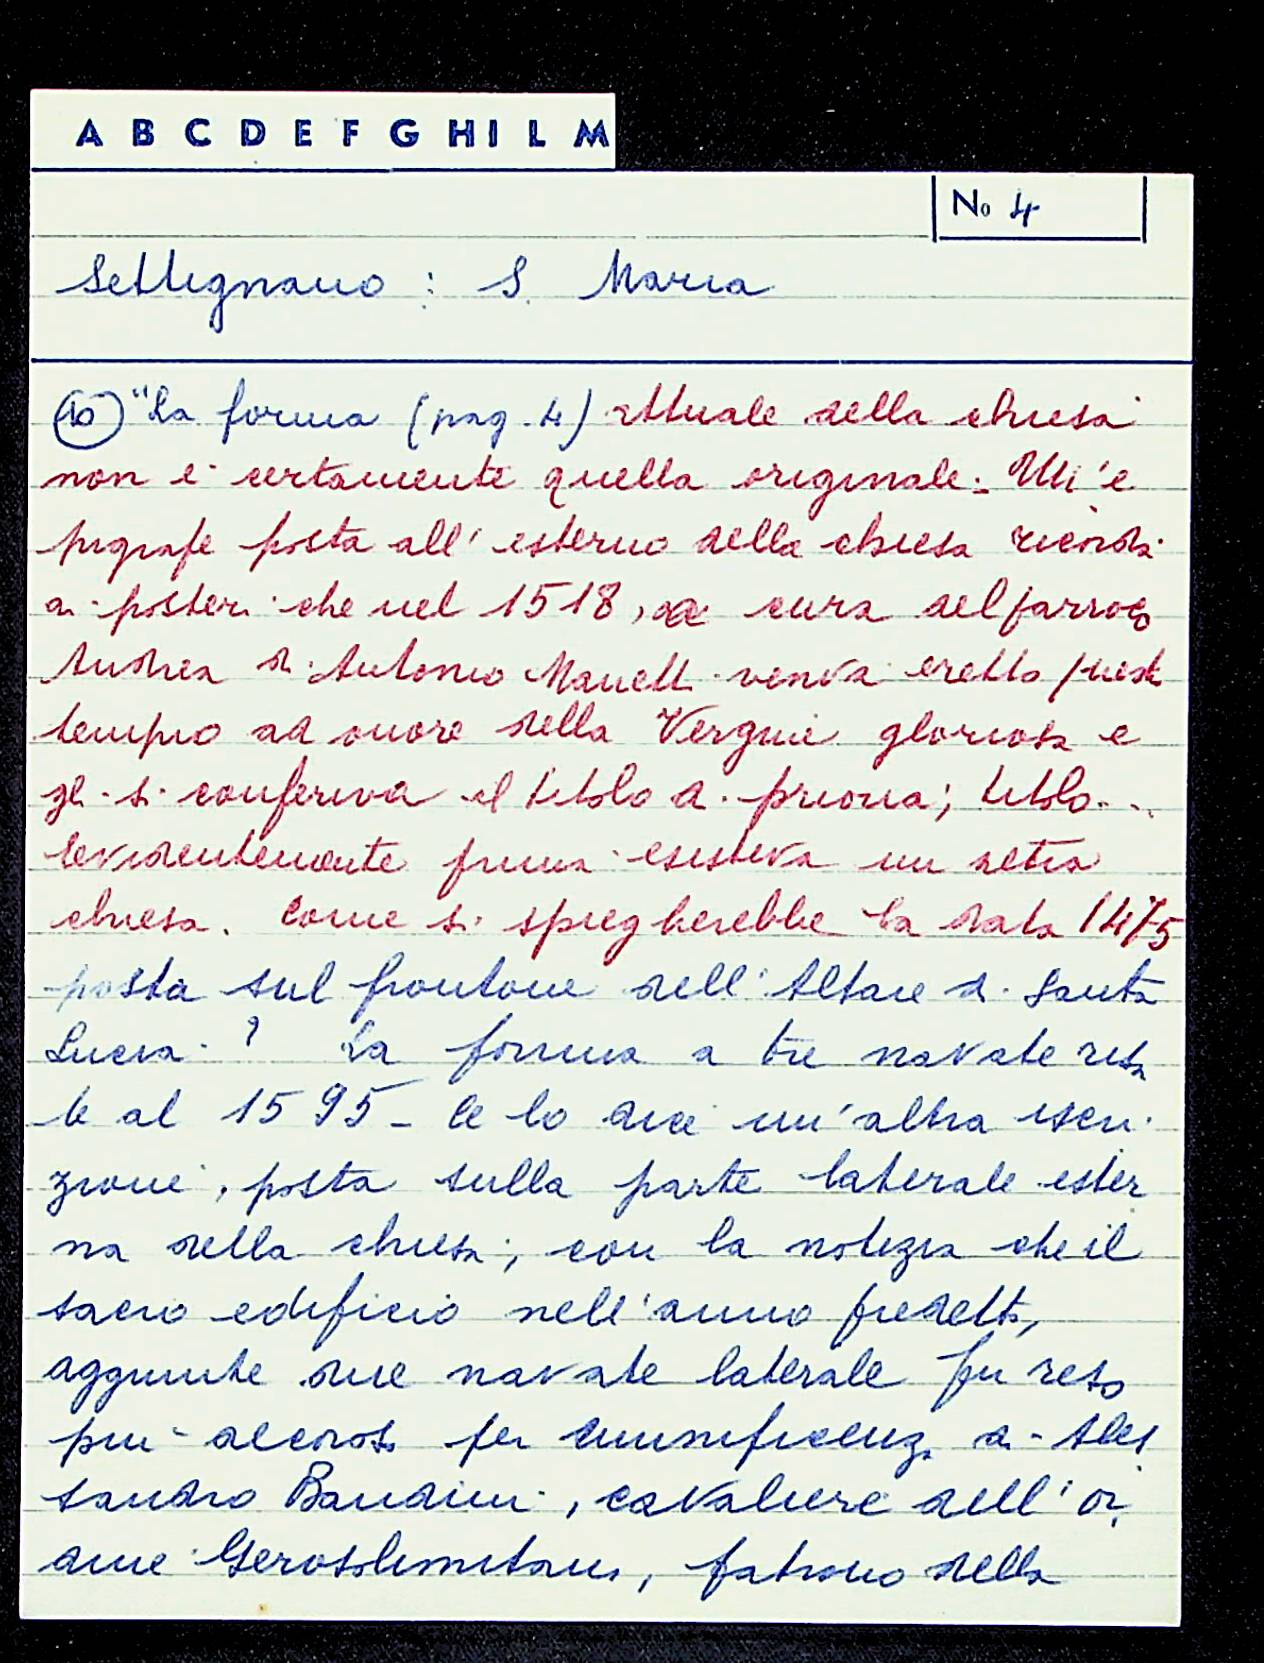 A B C D E F G H I L M
No 4
Settignano : S. Maria
10 "La forma (pag. 4) attuale della chiesa
non è certamente quella originale. Un'e
pigrafe posta all'esterno della chiesa ricorda
ai posteri che nel 1518, a cura del parroco
Andrea di Antonio Manelli veniva eretto questo
tempio ad onore della Vergine gloriosa e
gli si conferiva il titolo di prioria; titolo..
evidentemente prima esisteva un altra
chiesa. Come si spiegherebbe la data 1475
posta sul frontone dell'Altare di Santa
Lucia ? La forma a tre navate risa
le al 1595 - Ce lo dice un'altra iscri
zione, posta sulla parte laterale ester
na della chiesa, con la notizia che il
sacro edificio nell'anno predetto,
aggiunte due navate laterale fu reso
piu decoroso per munificenza di Ales
sandro Bandini, cavaliere dell'or
dine Gerosolimitano, patrono della